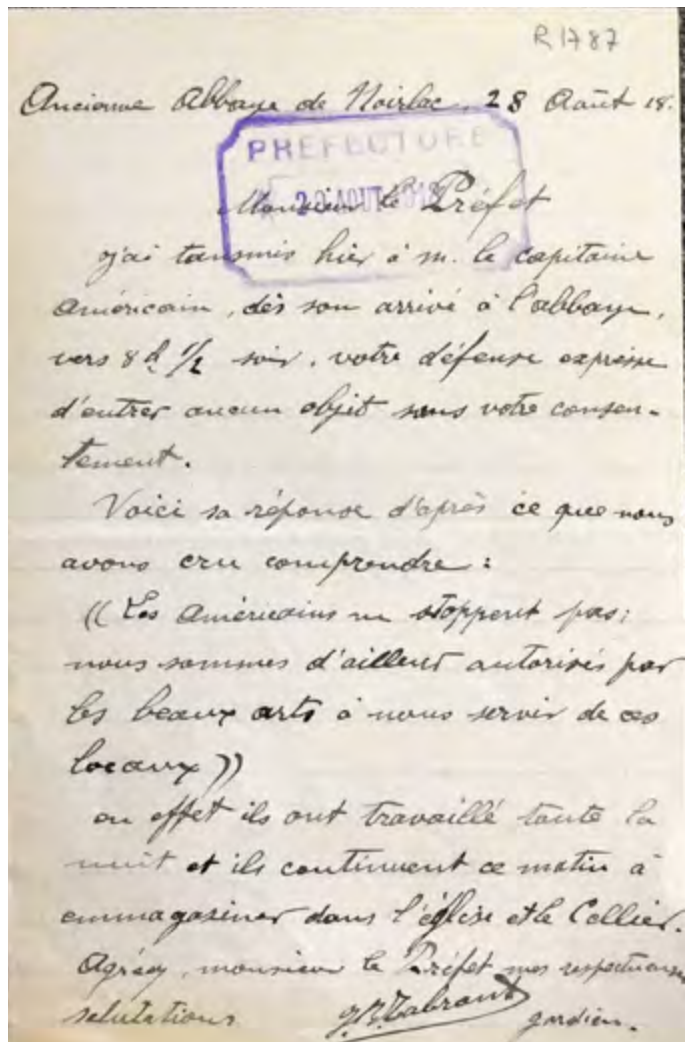 R 1787
Ancienne Abbaye de Noirlac, 28 Août 18.
PREFECTURE
29 AOUT 1918
Monsieur le Préfet
j'ai tansmis hier à m. le capitaine
Américain, dès son arrivé à l'abbaye,
vers 8h 1/2 soir, votre défense expresse
d'entrer aucun objet sans votre consen-
tement.
Voici sa réponse d'après ce que nous
avons cru comprendre :
(( Les Américains ne stoppent pas;
nous sommes d'ailleur autorisés par
les beaux arts à nous servir de ces
locaux ))
en effet ils ont travaillé toute la
nuit et ils continuent ce matin à
emmagasiner dans l'église et le Cellier.
Agréez, monsieur le Préfet mes respectueuses
salutations
gardien.